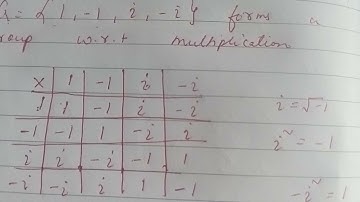 G = { 1, -1, i, -i } forms a
roup w.r.t multiplication
× 1 -1 i -i
1 1 -1 i -i
i = √-1
-1 -1 1 -i i
i² = -1
i i -i -1 1
-i -i i 1 -1
-i² = 1